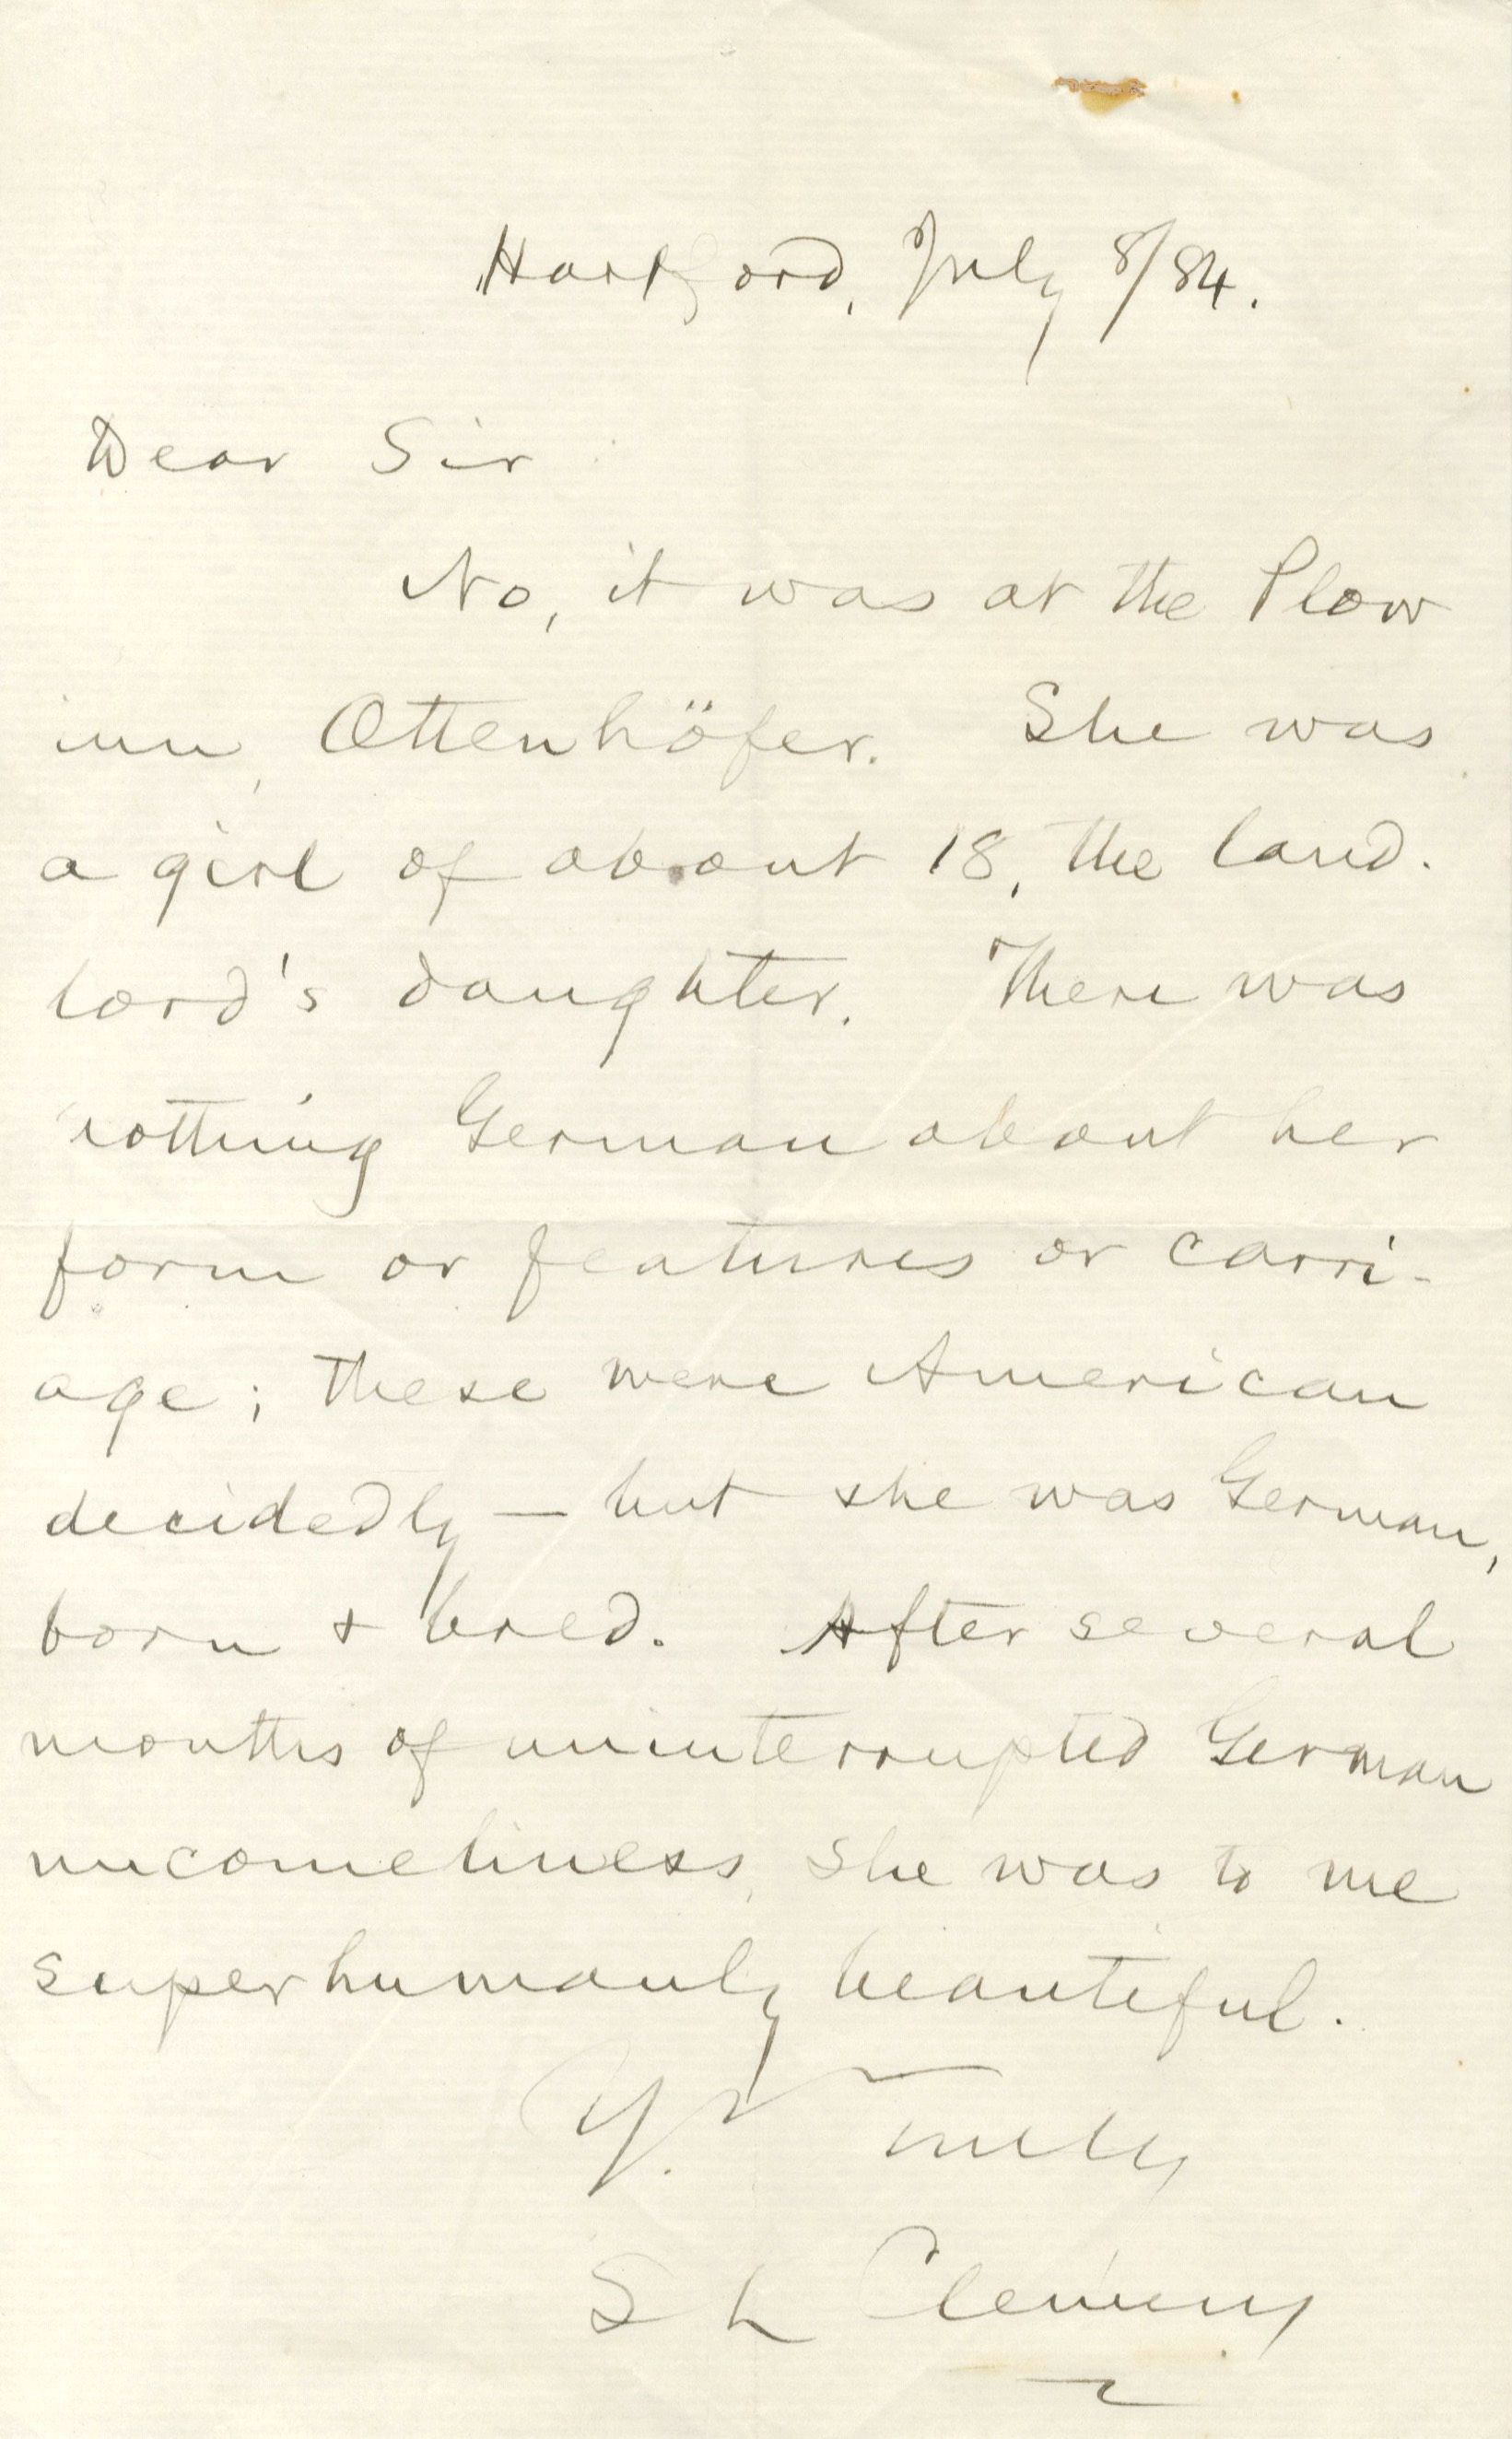 Hartford, July 8/84.
Dear Sir:
No, it was at the Plow
inn, Ottenhöfer. She was
a girl of about 18, the land-
lord's daughter. There was
nothing German about her
form or features or carri-
age; these were American
decidedly — but she was German,
born & bred. After several
months of uninterrupted German
uncomeliness, she was to me
superhumanly beautiful.
Y. Truly
S L Clemens